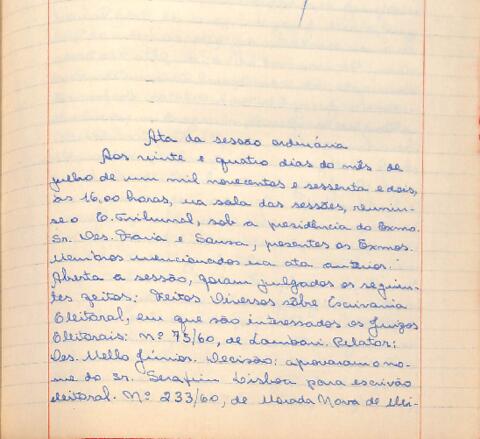 Ata da sessão ordinária
Aos vinte e quatro dias do mês de
julho de um mil novecentos e sessenta e dois,
às 16,00 horas, na sala das sessões, reuniu-
se o E. Tribunal, sob a presidência do Exmo.
Sr. Des. Faria e Sousa, presentes os Exmos.
Membros mencionados na ata anterior.
Aberta a sessão, foram julgados os seguin-
tes feitos: Feitos Diversos sôbre Escrivania
Eleitoral, em que são interessados os Juizos
Eleitorais: nº 75/60, de Lambari. Relator:
Des. Mello Júnior. Decisão: aprovaram o no-
me do Sr. Serafim Lisboa para escrivão
eleitoral. Nº 233/60, de Morada Nova de Mi-